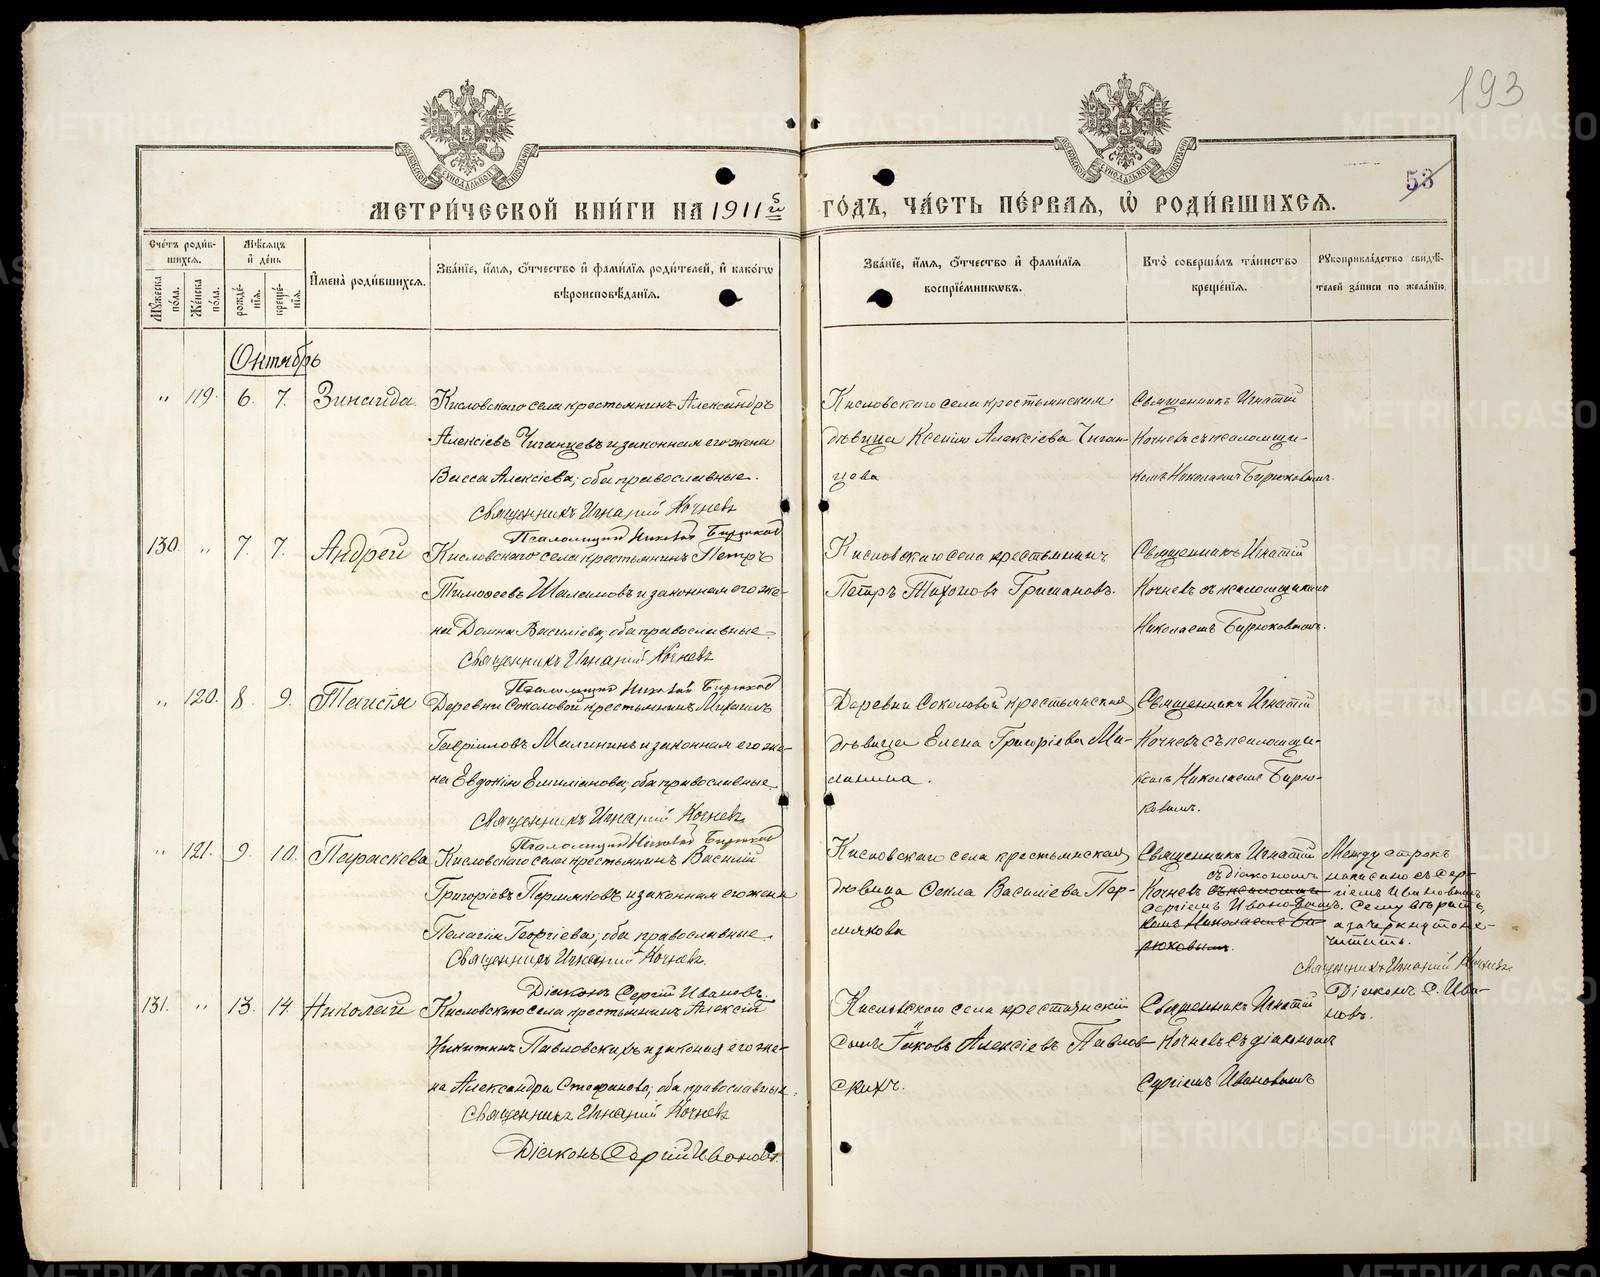 193
53
МЕТРИ́ЧЕСКОЙ КНИ́ГИ НА 1911й ГО́ДЪ, ЧА́СТЬ ПЕ́РВАЯ, Ѡ҆ РОДИ́ВШИХСЯ.
Сче́тъ роди́вшихся.
Му́жеска по́ла.
Же́нска по́ла.
Мѣ́сяцъ и҆ де́нь
рожде́нїя.
креще́нїя.
И҆мена̀ роди́вшихся.
Зва́нїе, и҆́мя, ѻ҆́тчество и҆ фами́лїя роди́телей, и҆ како́гѡ
вѣроисповѣ́данїя.
Зва́нїе, и҆́мя, ѻ҆́тчество и҆ фами́лїя
воспрїе́мникѡвъ.
Кто̀ соверша́лъ та́инство
креще́нїя.
Рукоприкла́дство свидѣ́-
телей за́писи по жела́нїю.
Октябрь
„ 119. 6. 7. Зинаида.
Кисловскаго села крестьянинъ Александръ
Алексіевъ Чиганцевъ и законная его жена
Васса Алексіева; оба православные.
Священникъ Игнатій Кочневъ
Псаломщикъ Николай Бирюковъ
Кисловскаго села крестьянская
дѣвица Ксенія Алексіева Чиган-
цева
Священникъ Игнатій
Кочневъ съ псаломщи-
комъ Николаемъ Бирюковымъ.
130. „ 7. 7. Андрей
Кисловскаго села крестьянинъ Петръ
Тимоѳеевъ Шаламовъ и законная его же-
на Домна Василіева; оба православные.
Священникъ Игнатій Кочневъ
Псаломщикъ Николай Бирюковъ
Кисловскаго села крестьянинъ
Петръ Тихоновъ Гришановъ.
Священникъ Игнатій
Кочневъ съ псаломщикомъ
Николаемъ Бирюковымъ.
„ 120. 8. 9. Таисія
Деревни Соколовой крестьянинъ Михаилъ
Гавріиловъ Малининъ и законная его же-
на Евдокія Емиліанова; оба православные
Священникъ Игнатій Кочневъ
Псаломщикъ Николай Бирюковъ
Деревни Соколовой крестьянская
дѣвица Елена Григоріева Ма-
линина.
Священникъ Игнатій
Кочневъ съ псаломщи-
комъ Николаемъ Бирю-
ковымъ.
„ 121. 9. 10. Параскева
Кисловскаго села крестьянинъ Василій
Григоріевъ Пермяковъ и законная его жена
Пелагія Георгіева; оба православные.
Священникъ Игнатій Кочневъ.
Діаконъ Сергій Ивановъ.
Кисловскаго села крестьянская
дѣвица Ѳекла Василіева Пер-
мякова
Священникъ Игнатій
съ діакономъ
Кочневъ съ псаломщи-
Сергіемъ Ивановымъ.
комъ Николаемъ Би-
рюковымъ.
Между строкъ
написано съ Сер-
гіемъ Ивановымъ
Сему вѣрить,
а зачеркнутое не
читать.
Священникъ Игнатій Кочневъ
Діаконъ С. Ива-
новъ.
131. „ 13. 14. Николай
Кисловскаго села крестьянинъ Алексій
Никитинъ Павловскихъ и законная его же-
на Александра Стефанова; оба православные.
Священникъ Игнатій Кочневъ
Діаконъ Сергій Ивановъ.
Кисловского села крестьянскій
сынъ Іаковъ Алексіевъ Павлов-
скихъ.
Священникъ Игнатій
Кочневъ съ діакономъ
Сергіемъ Ивановымъ